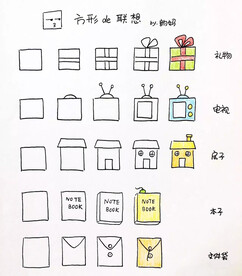 方形 de 联想 by:鹤妈
礼物
电视
房子
NOTE BOOK
NOTE BOOK
NOTE BOOK
本子
文件袋